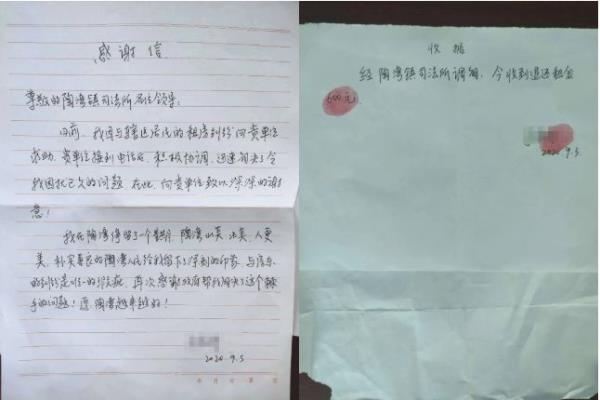 感谢信
尊敬的陶湾镇司法所各位领导:
日前,我因与辖区居民的租房纠纷向贵单位
求助,贵单位接到电话后,积极协调,迅速解决了令
我困扰已久的问题,在此,向贵单位致以深深的谢
意!
我在陶湾停留了一个暑期,陶湾山美、水美、人更
美,朴实善良的陶湾人民给我留下了深刻的印象,与房东
的纠纷是唯一的瑕疵,再次感谢政府帮我解决了这个棘
手的问题!愿陶湾越来越好!
2020.9.5
收据
经陶湾镇司法所调解,今收到退还租金
600元.
2020.9.5